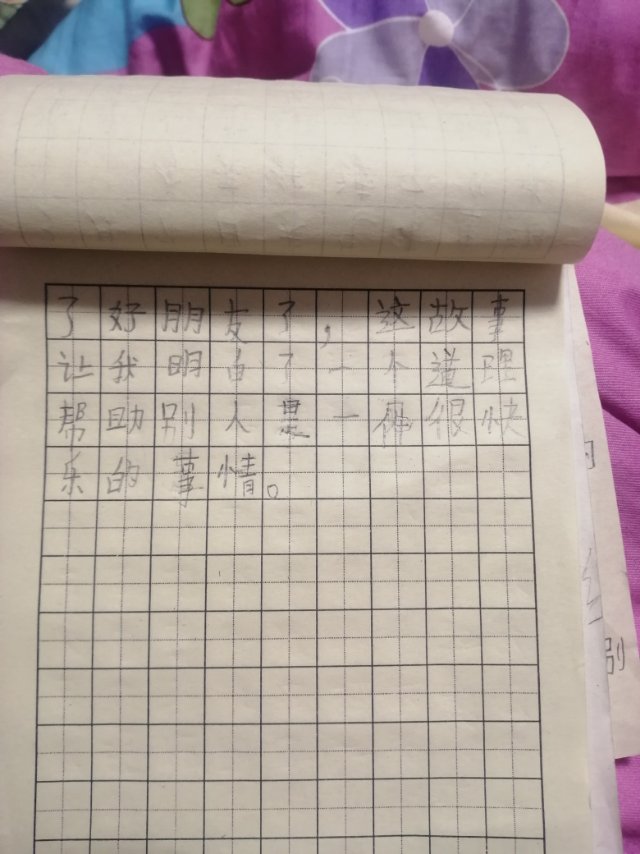 了好朋友了，这故事
让我明白了一个道理
帮助别人是一件很快
乐的事情。
别